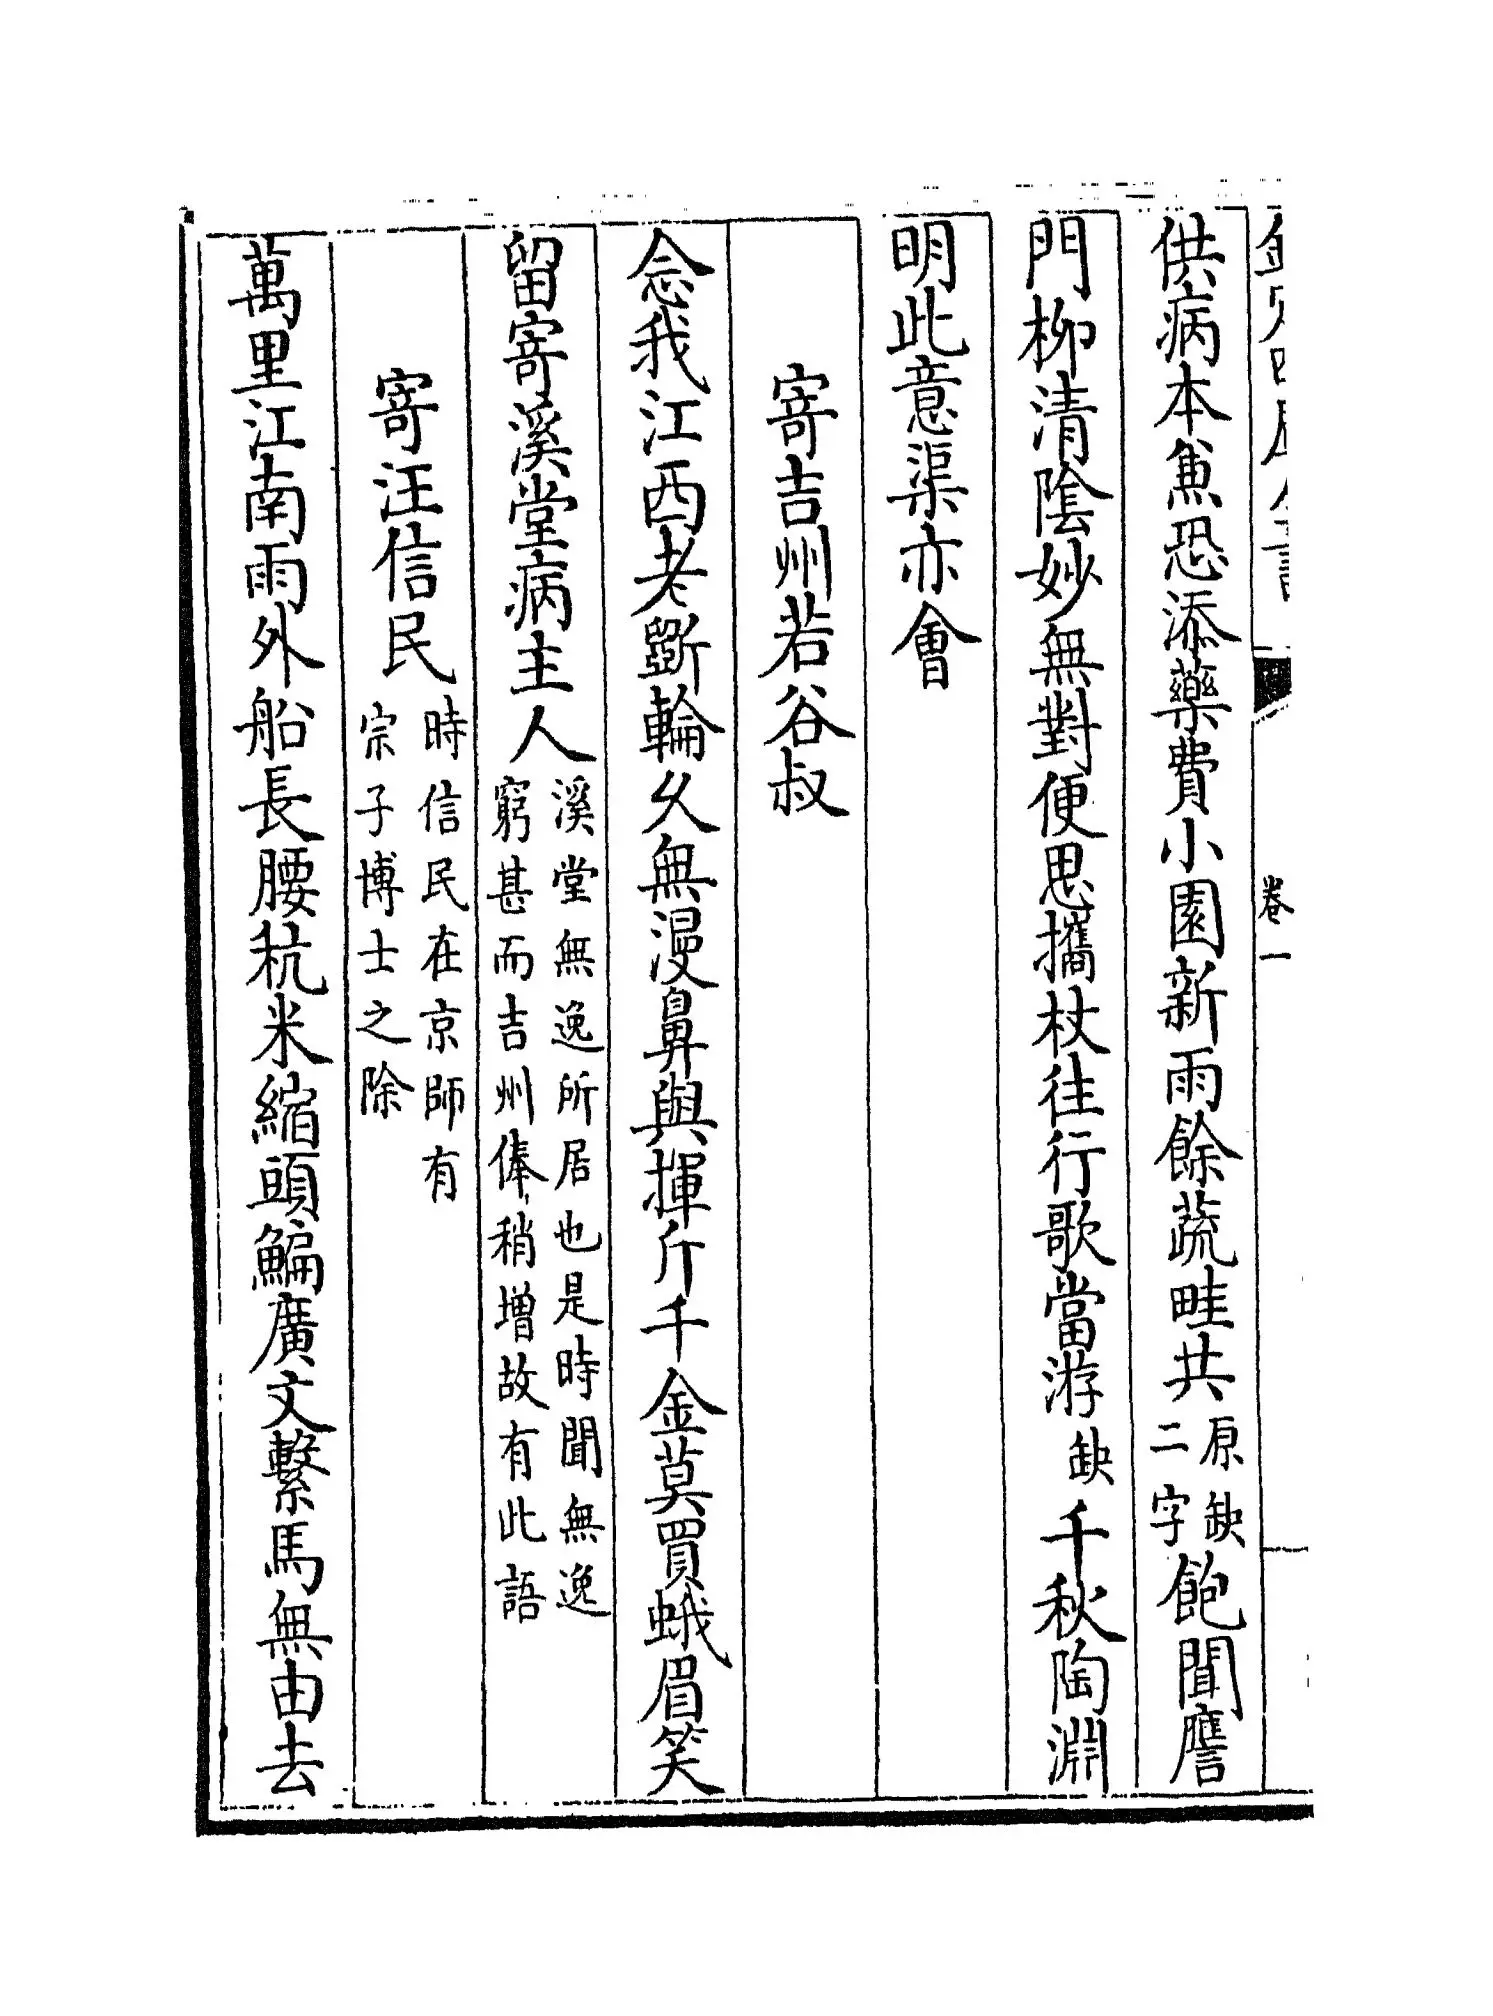 欽定四庫全書 卷一
供病本兼恐添藥費小園新雨餘蔬畦共原缺二字飽聞譍
門柳清陰妙無對便思攜杖往行歌當游缺千秋陶淵
明此意渠亦會
寄吉州若谷叔
念我江西老斵輪久無漫鼻與揮斤千金莫買蛾眉笑
留寄溪堂病主人溪堂無逸所居也是時聞無逸窮甚而吉州俸稍增故有此語
寄汪信民時信民在京師有宗子博士之除
萬里江南雨外船長腰秔米縮頭鯿廣文繫馬無由去